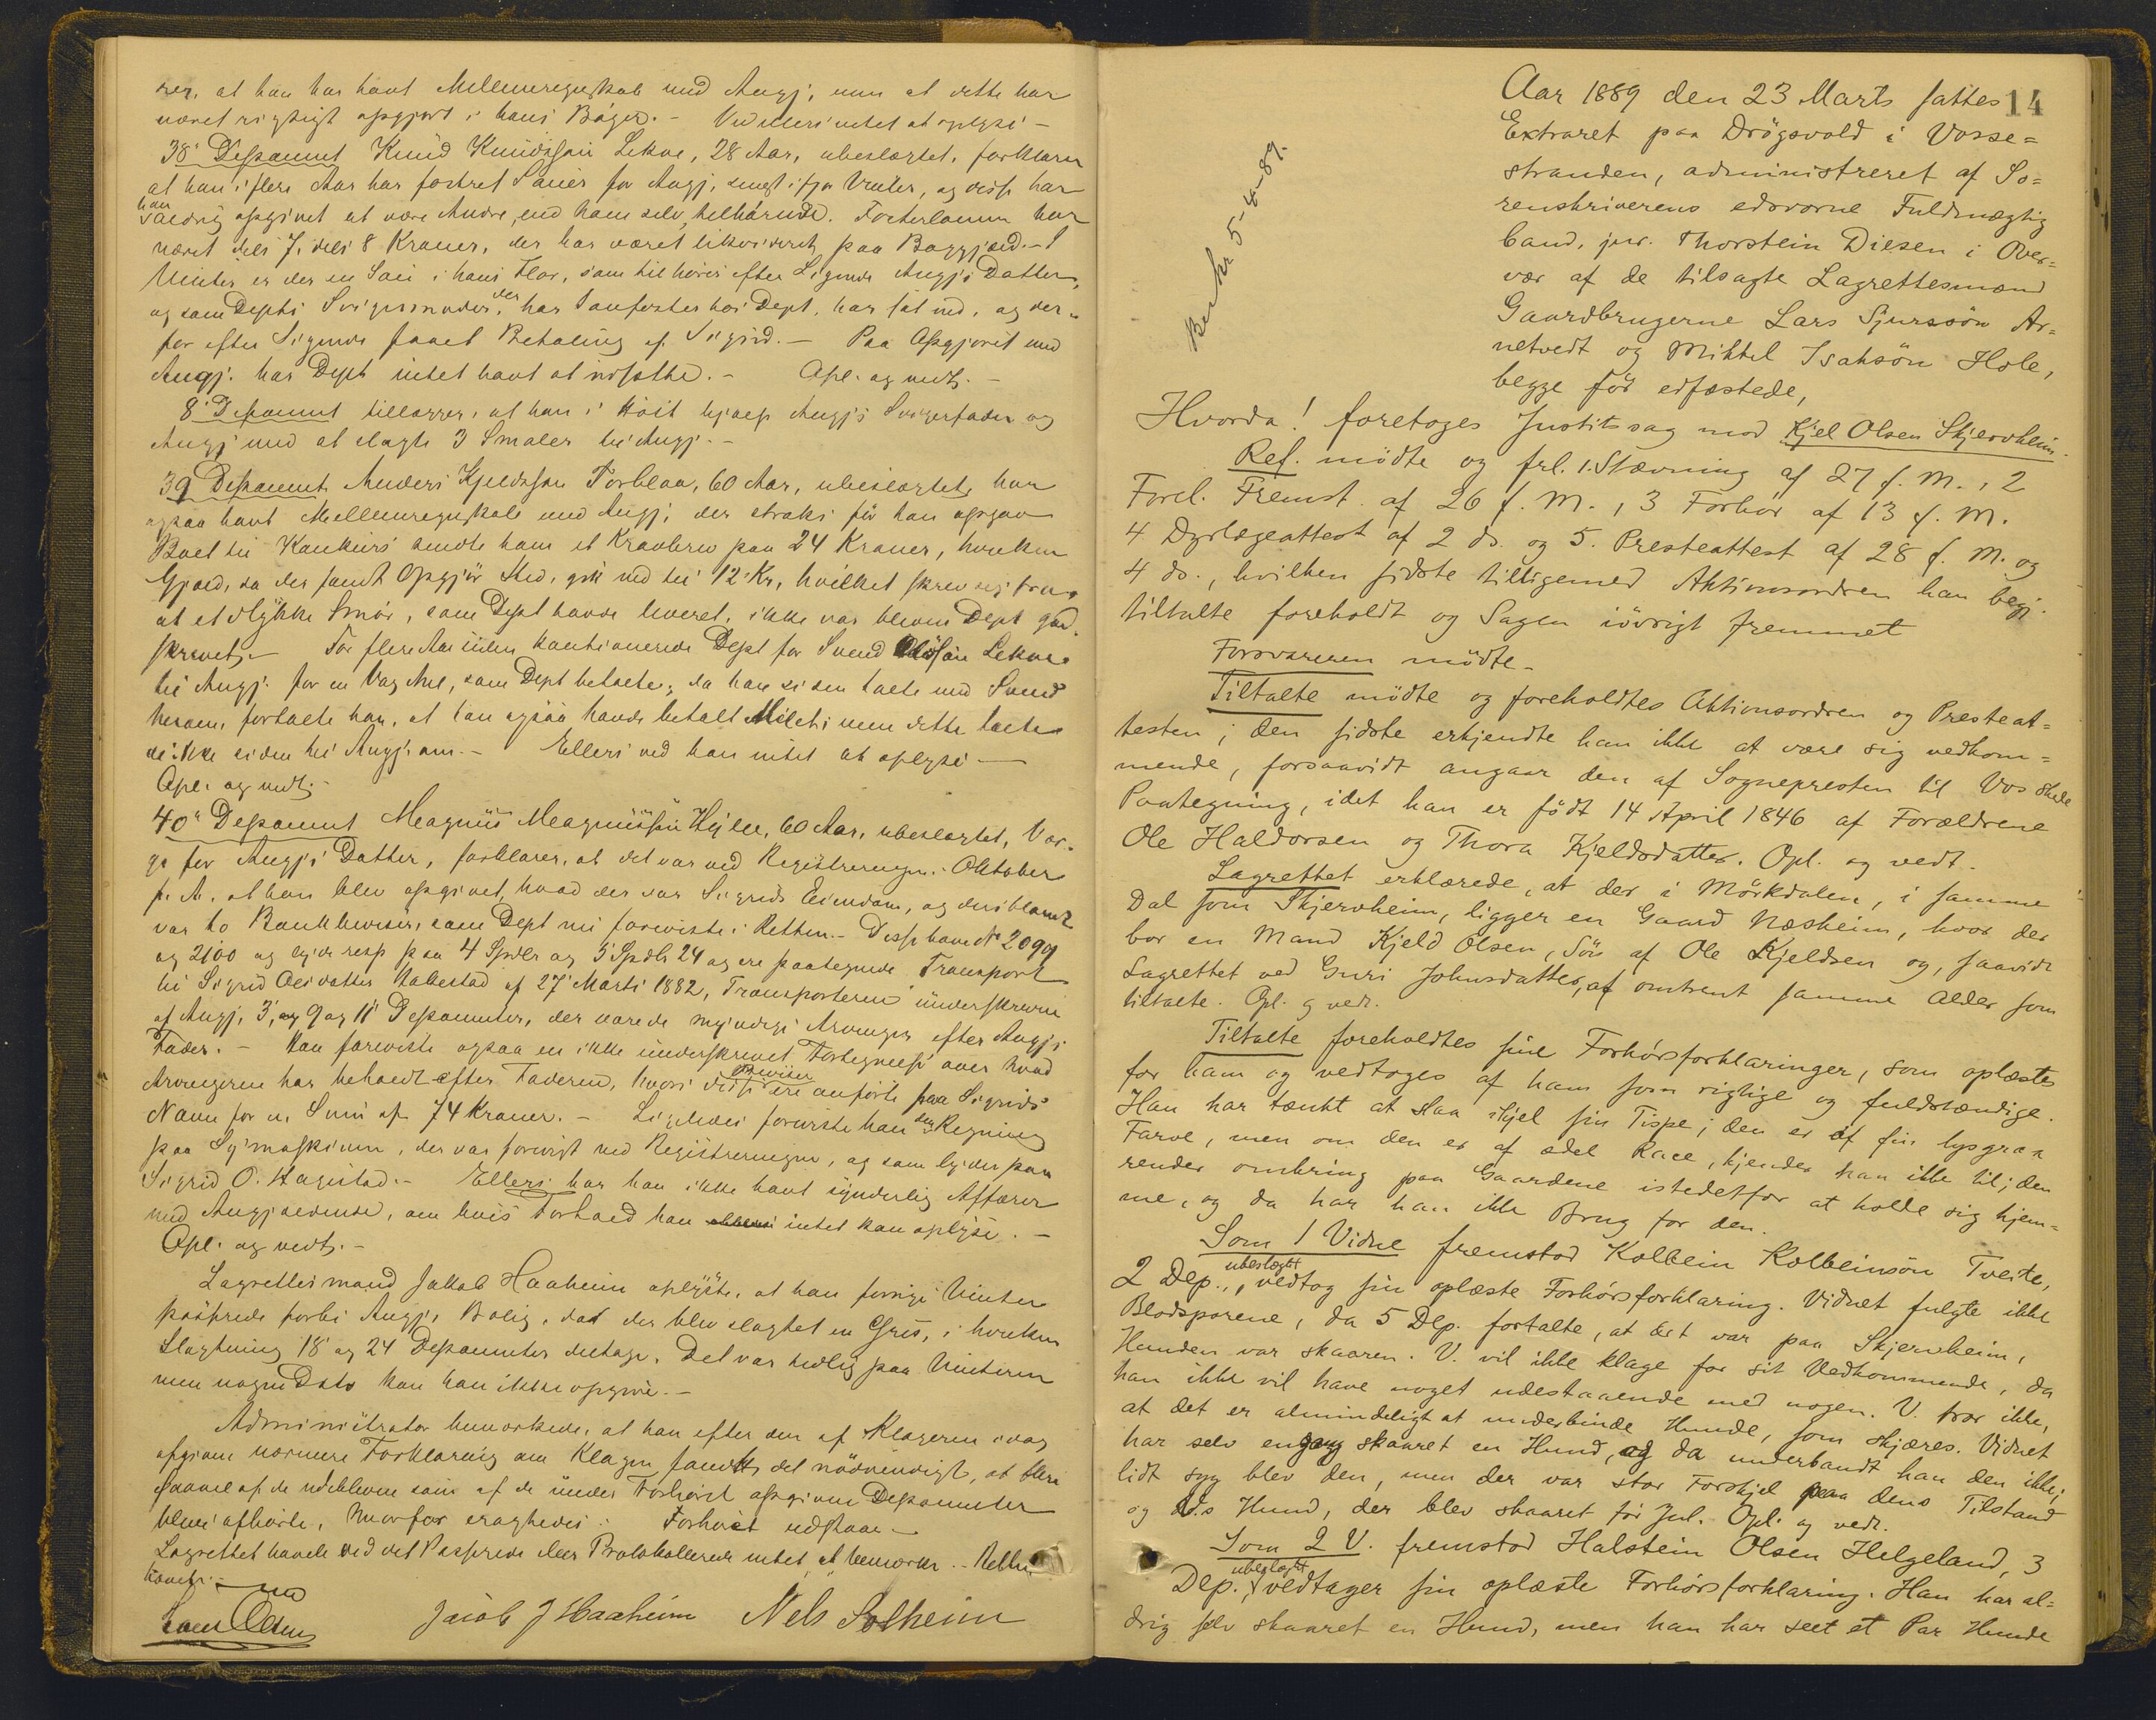 rer, at han har havt Mellemregnskab med Angj., men at dette har
været rigtigt opgjort i hans Bøger. - Ved ellers intet at oplyse -
38' Deponent Knud Knudssøn Lekve, 28 Aar, ubeslægtet, forklarer
at han i flere Aar har fostret Sauer for Angj., senest ifjor Vinter, og disse har
han aldrig opgivet at være Andre, end ham selv, tilhørende. Fosterlønnen har
været dels 7, dels 8 Kroner, der har været likvideret paa Byggjæld. - I
Vinter er der en Sau i hans Flor, som tilhører efter Sigende Angj's Datter,
og som Depts Svigermoder, der har Sauefoster hos Dept, har sat ind, og der-
for efter Sigende faaet Betaling af Sigrid. - Paa Opgjøret med
Angj. har Dept intet havt at udsætte. - Opl. og vedt. -
8' Deponent tillægger, at han i Høst hjalp Angj's Svigerfader og
Angj med at slagte 3 Smaler hos Angj. -
39 Deponent, Anders Kjeldsson Torblaa, 60 Aar, ubeslægtet, har
ogsaa havt Mellemregnskab med Angj; der straks før han opgav
Boet til Konkurs sendte ham et Kravbrev paa 24 Kroner, hvilken
Gjæld, da der fandt Opgjør Sted, gik ned til 12 Kr, hvilket skrev sig fra,
at et Stykke Smør, som Dept havde leveret, ikke var bleven Dept god-
skrevet. - For flere Aar siden kautionerede Dept for Svend Olssøn Lekve
til Angj. for en Vog Mel, som Dept betalte; da han siden talte med Svend
herom, fortalte han, at han ogsaa havde betalt Melet; men dette talte
de ikke siden til Angj. om. - Ellers ved han intet at oplyse -
Opl. og vedt. -
40' Deponent Magnus Magnussøn Hylle, 60 Aar, ubeslægtet, Vær-
ge for Angj's Datter, forklarer, at det var ved Registreringen i Oktober
f. A. at han blev opgivet, hvad der var Sigrids Eiendom, og deriblandt
var to Bankbeviser, som Dept nu foreviste i Retten. - Disse have No 2099
og 2100 og lyde resp paa 4 Spdlr og 5 Spdlr 24 og ere paategnede Transport
til Sigrid Olsdatter Hakestad af 27' Marts 1882, Transporteren underskreven
af Angj, 3', og 9 og 11' Deponenter, der vare de myndige Arvinger efter Angj's
Fader. - Han foreviste ogsaa en ikke underskrevet Fortegnelse over hvad
Arvingerne har beholdt efter Faderen, hvori disse Beviser ere anførte paa Sigrids
Navn for en Sum af 74 Kroner. - Ligeledes foreviste han den Regning
paa Symaskinen, der var forevist ved Registreringen, og som lyder paa
Sigrid O. Hagestad. - Ellers har han ikke havt synderlig Affærer
med Angjældende, om hvis Forhold han intet kan oplyse. -
Opl. og vedt. -
Lagrettesmand Jakob Haaheim oplyste, at han forrige Vinter
passerede forbi Angj's Bolig, da der blev slagtet en Gris, i hvilken
Slagtning 18' og 24 Deponenter deltage. Det var tidlig paa Vinteren
men nogen Dato kan han ikke opgive. -
Administrator bemærkede, at han efter den af Klageren idag
afgivne nærmere Forklaring om Klagen fandt det nødvendigt, at flere
saavel af de udeblevne som af de under Forhøret opgivne Deponenter
bleve afhørte, hvorfor eragtedes: Forhøret udstaar. -
Lagrettet havde ved det Passerede eller Protokollerede intet at bemærke. - Retten
hævet. -
Jacob J Haaheim Nels Solheim
14
Aar 1889 den 23 Marts sattes
Extraret paa Drögsvold i Vosse=
stranden, administreret af So=
renskriverens edsvorne Fuldmægtig
cand. jur. Thorstein Diesen i Over=
vær af de tilsagte Lagrettesmænd
Gaardbrugerne Lars Sjurssön Ar=
netvedt og Mikkel Isaksön Hole,
begge för edfæstede,
Hvorda! foretoges Justitssag mod Kjel Olsen Skjervheim.
Ref. mödte og frl. 1. Stævning af 27 f. M., 2
Forel. Fremst. af 26 f. M., 3 Forhör af 13 f. M.
4 Dyrlægeattest af 2 ds. og 5. Presteattest af 28 f. M. og
4 ds., hvilken sidste tilligemed Aktionsordren han begj.
tiltalte foreholdt og Sagen iövrigt fremmet
Forsvareren mödte -
Tiltalte mödte og foreholdtes Aktionsordren og Presteat=
testen; den sidste erkjendte han ikke at være sig vedkom=
mende, forsaavidt angaar den af Sognepresten til Vos skede
Paategning, idet han er födt 14 April 1846 af Forældrene
Ole Haldorsen og Thora Kjeldsdatter. Opl. og vedt.
Lagrettet erklærede, at der i Mörkdalen, i samme
Dal som Skjervheim, ligger en Gaard Næsheim, hvor der
bor en Mand Kjeld Olsen, Sön af Ole Kjeldsen og, saavidt
Lagrettet ved Guri Johnsdatter, af omtrent samme Alder som
tiltalte. Opl. og vedt.
Tiltalte foreholdtes sine Forhörsforklaringer, som oplæstes
for ham og vedtoges af ham som rigtige og fuldstændige.
Han har tænkt at slaa ihjel sin Tispe; den er af fin lysgraa
Farve, men om den er af ædel Race, kjender han ikke til; den
render omkring paa Gaardene istedetfor at holde sig hjem=
me, og da har han ikke Brug for den.
Som 1 Vidne fremstod Kolbein Kolbeinsön Tveite,
2 Dep., ubeslægtet, vedtog sin oplæste Forhörsforklaring. Vidnet fulgte ikke
Blodsporene, da 5 Dep. fortalte, at det var paa Skjervheim,
Hunden var skaaren. V. vil ikke klage for sit Vedkommende, da
han ikke vil have noget udestaaende med nogen. V. tror ikke,
at det er almindeligt at underbinde Hunde, som skjæres. Vidnet
har selv engang skaaret en Hund, og da underbandt han den ikke;
lidt syg blev den, men der var stor Forskjel paa dens Tilstand
og V.s Hund, der blev skaaret för Jul. Opl. og vedt.
Som 2 V. fremstod Halstein Olsen Helgeland, 3
Dep., ubeslægtet vedtager sin oplæste Forhörsforklaring. Han har al=
drig selv skaaret en Hund, men han har seet et Par Hunde